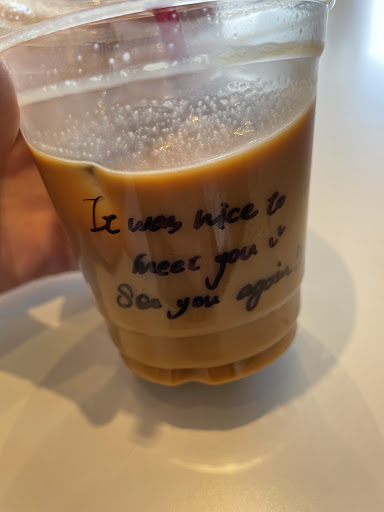 It was nice to
meet you
See you again!